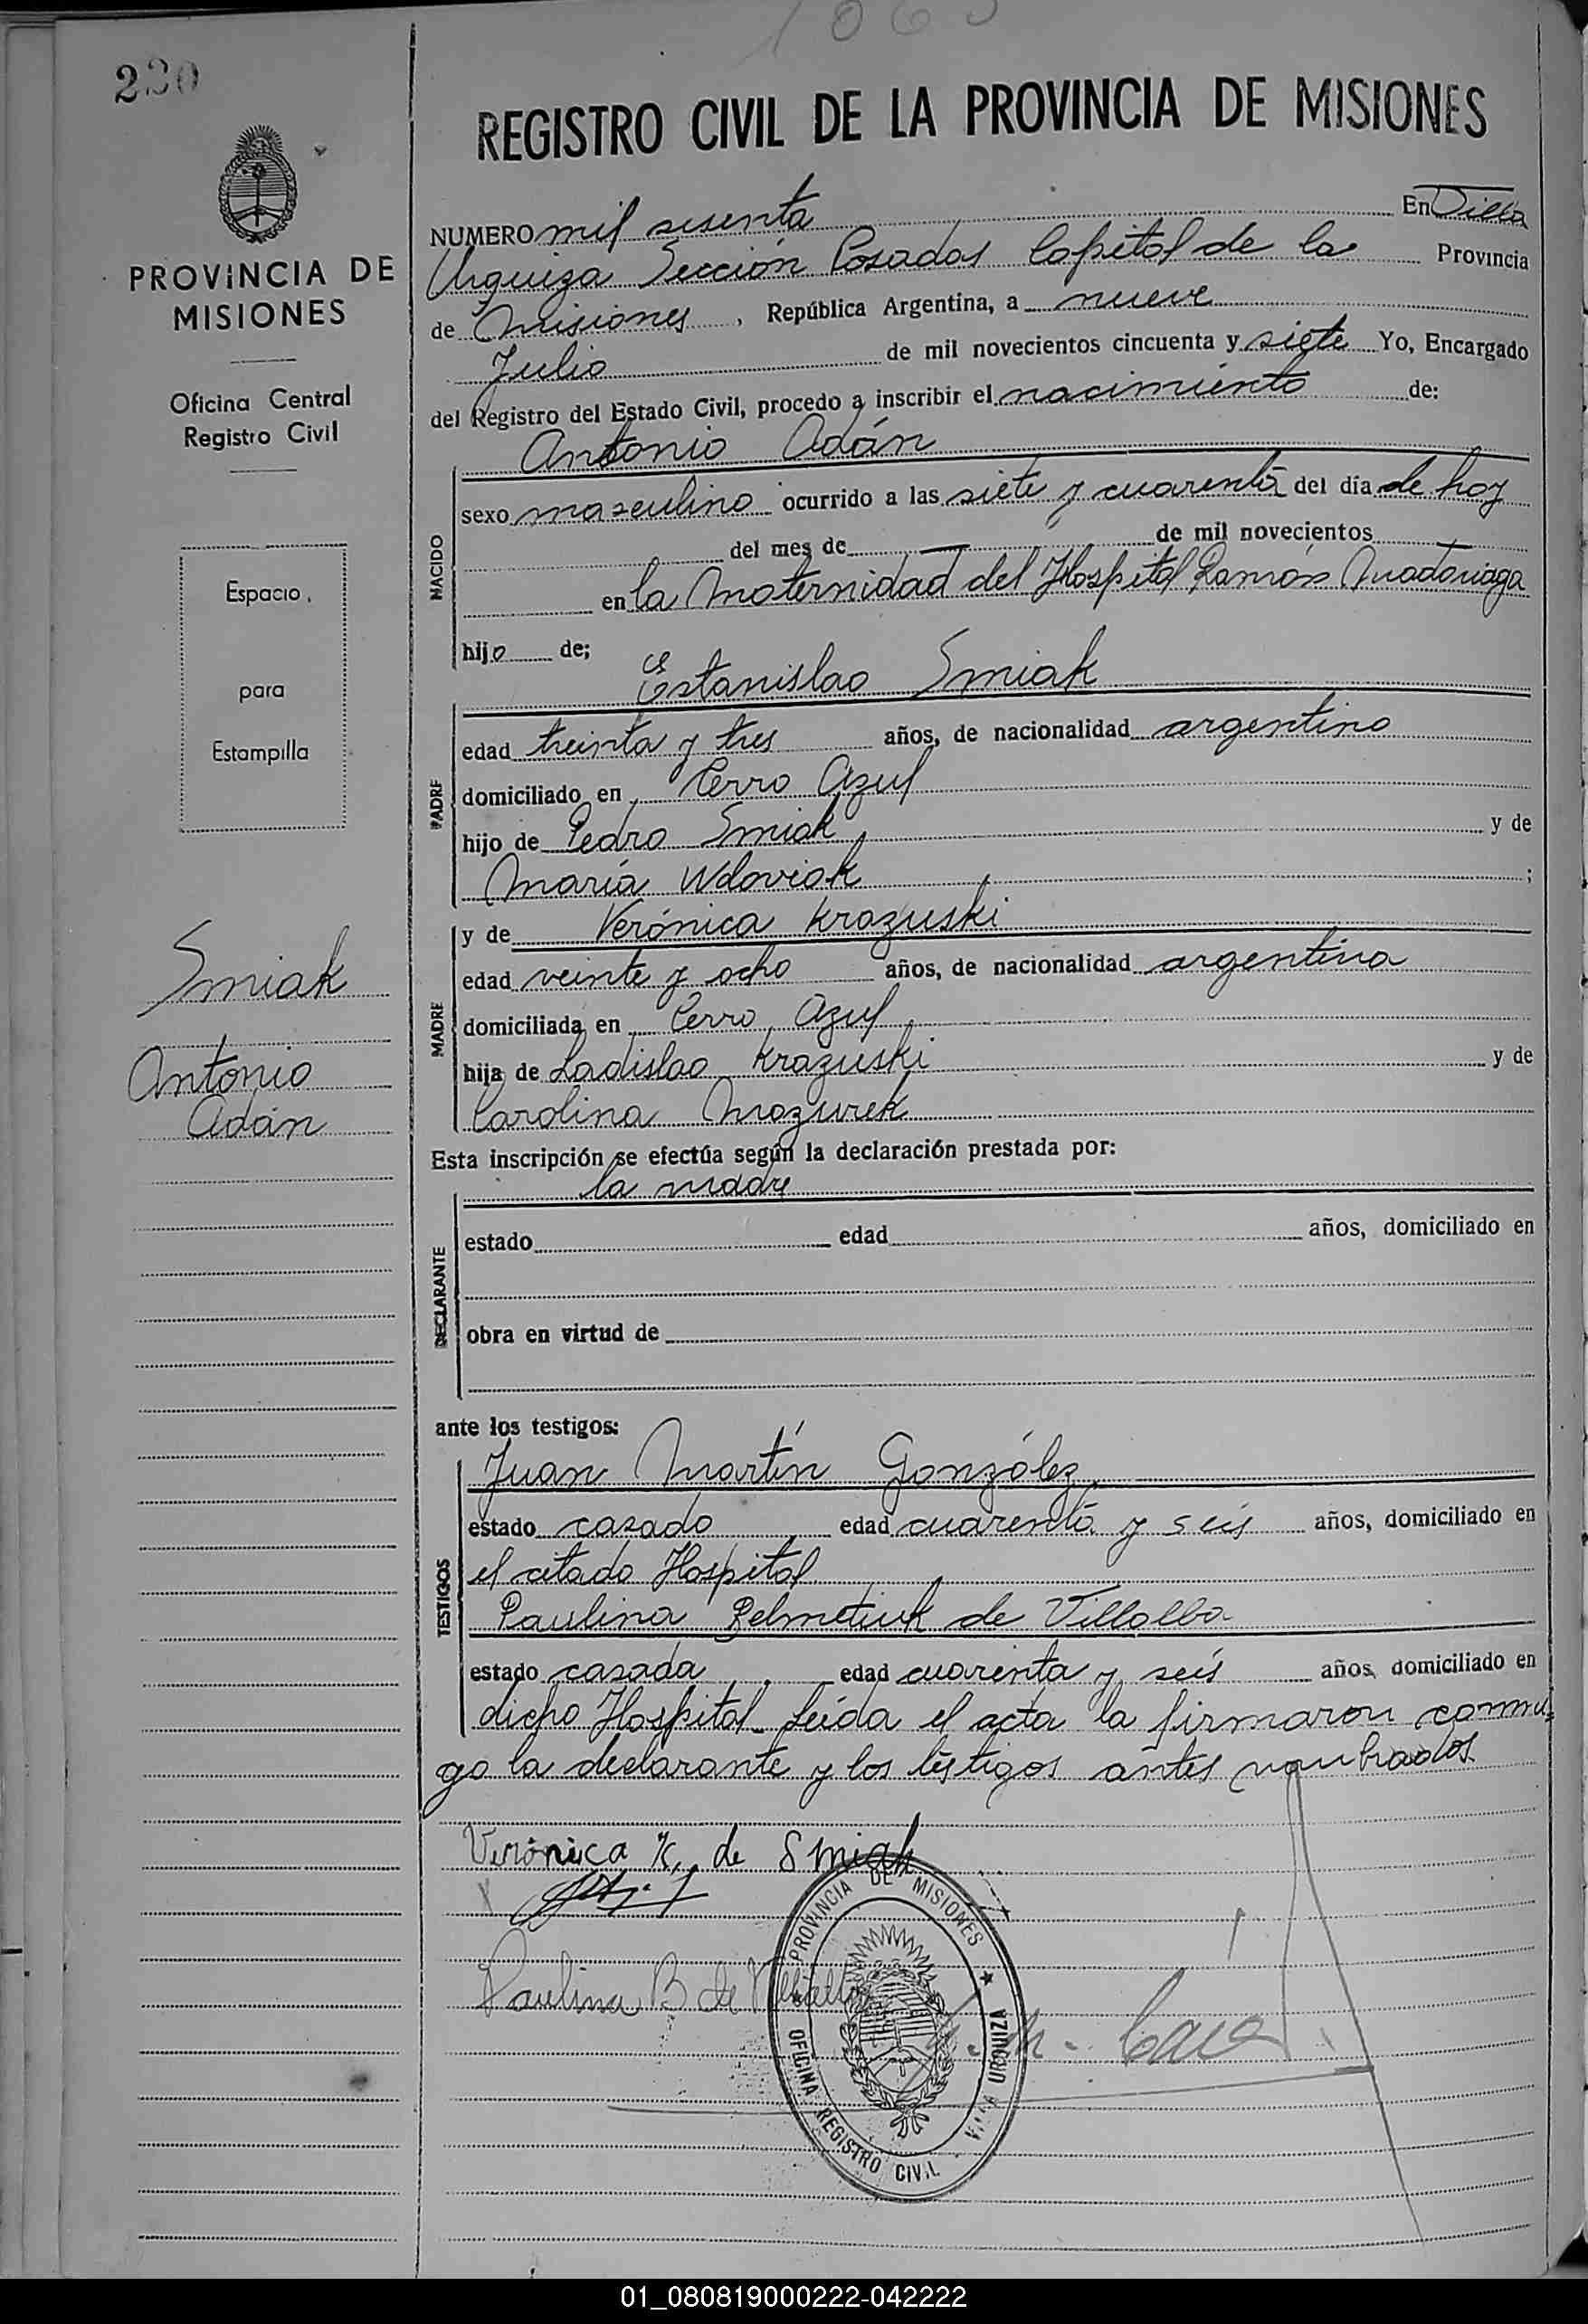 230
PROVINCIA DE
MISIONES
Oficina Central
Registro Civil
Espacio
para
Estampilla
Smiak
Antonio
Adán
REGISTRO CIVIL DE LA PROVINCIA DE MISIONES
NUMERO mil sesenta En Villa
Urquiza Sección Posadas Capital de la Provincia
de Misiones, República Argentina, a nueve
Julio de mil novecientos cincuenta y siete Yo, Encargado
del Registro del Estado Civil, procedo a inscribir el nacimiento de:
Antonio Adán
NACIDO
sexo masculino ocurrido a las siete y cuarenta del día de hoy
del mes de — de mil novecientos —
en la Maternidad del Hospital Ramón Madariaga
hijo de;
Estanislao Smiak
PADRE
edad treinta y tres años, de nacionalidad argentino
domiciliado en Cerro Azul
hijo de Pedro Smiak y de
María Wdoviak ;
y de Verónica Krazuski
MADRE
edad veinte y ocho años, de nacionalidad argentina
domiciliada en Cerro Azul
hija de Ladislao Krazuski y de
Carolina Mazurek
Esta inscripción se efectúa según la declaración prestada por:
la madre
DECLARANTE
estado edad años, domiciliado en
obra en virtud de
ante los testigos:
Juan Martín González
TESTIGOS
estado casado edad cuarenta y seis años, domiciliado en
el citado Hospital
Paulina de Villalba
estado casada edad cuarenta y seis años, domiciliado en
dicho Hospital. Leída el acta la firmaron conmi-
go la declarante y los testigos antes nombrados
Verónica K. de Smiak
Paulina B. de Villalba
PROVINCIA DE MISIONES
OFICINA REGISTRO CIVIL VILLA URQUIZA
01_080819000222-042222